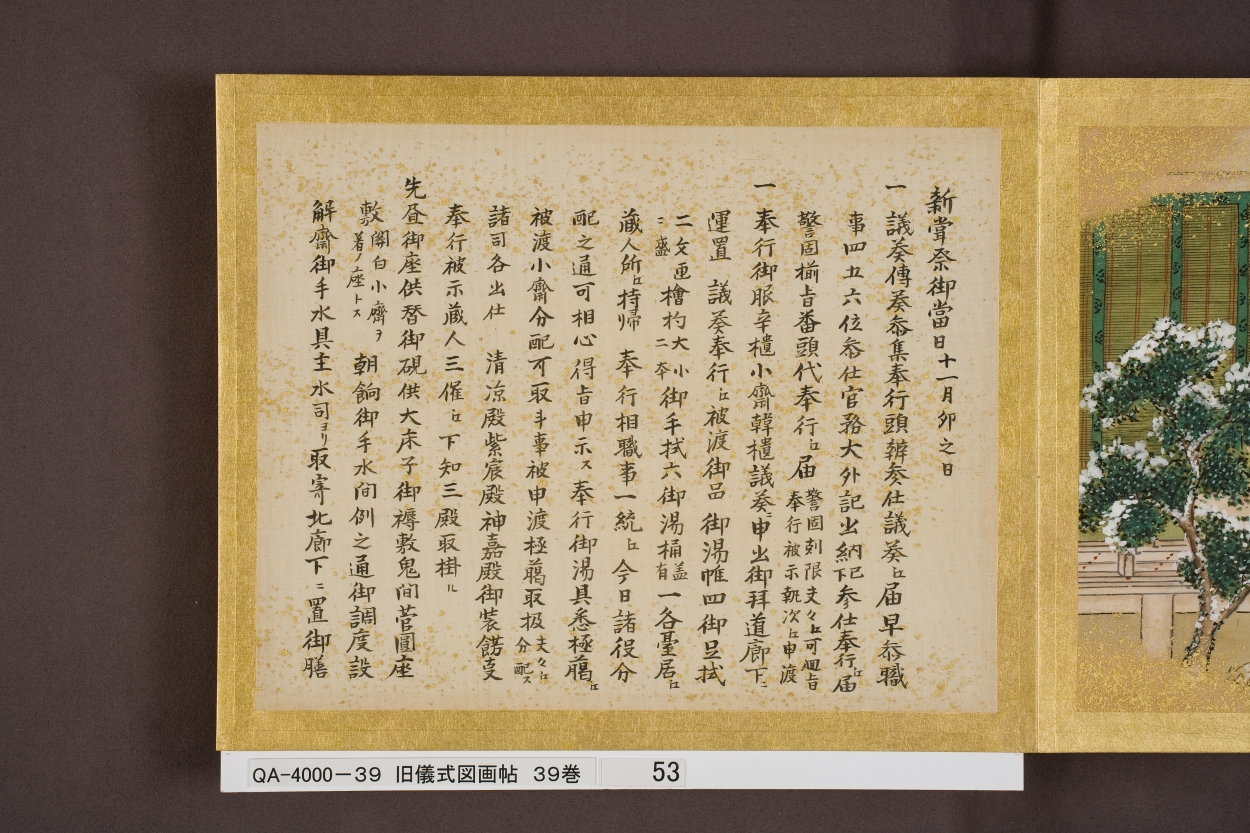 新嘗祭御當日十一月卯之日
一 議奏傳奏叅集奉行頭辨参仕議奏江届早叅職
事四五六位叅仕官務大外記出納下参仕奉行江届
警固揃旨番頭代奉行江届 警固刻限夫々江可廻旨奉行被示執次江申渡
一 奉行御服辛櫃小齋韓櫃議奏ニ申出御拜道廊下ニ
運置 議奏奉行江被渡御品 御湯帷四御足拭
二攵匣檜杓大小二夲御手拭六御湯桶盖有一各臺居江
ニ盛
蔵人所江持帰リ 奉行相職事一統江今日諸役分
配之通可相心得旨申示ス奉行御湯具悉極﨟江
被渡小齋分配可取斗事被申渡極﨟取扱夫々江分配ス
諸司各出仕 清凉殿紫宸殿神嘉殿御装餝支
奉行被示蔵人三催江下知三殿取掛ル
先昼御座供替御硯供大床子御褥敷鬼間菅圓座
敷関白小齋ヲ着ノ座トス 朝餉御手水間例之通御調度設
解齋御手水具主水司ヨリ取寄北廊下ニ置御膳
QA-4000-39 旧儀式図画帖 39巻 53